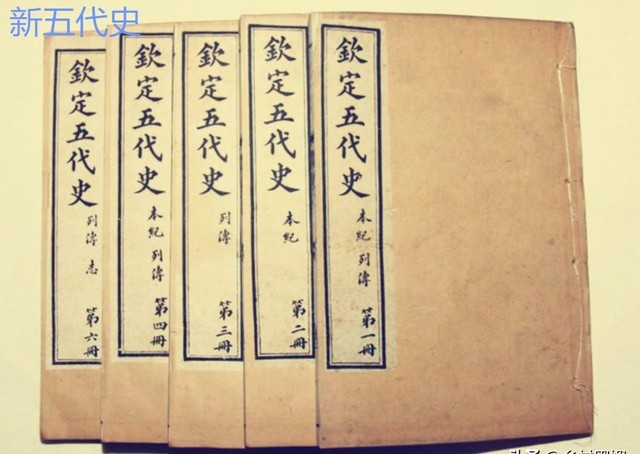 新五代史
欽定五代史 本紀 列傳 第一冊
欽定五代史 本紀 第二冊
欽定五代史 列傳 第三冊
欽定五代史 本紀 列傳 第四冊
欽定五代史 列傳 志 第六冊